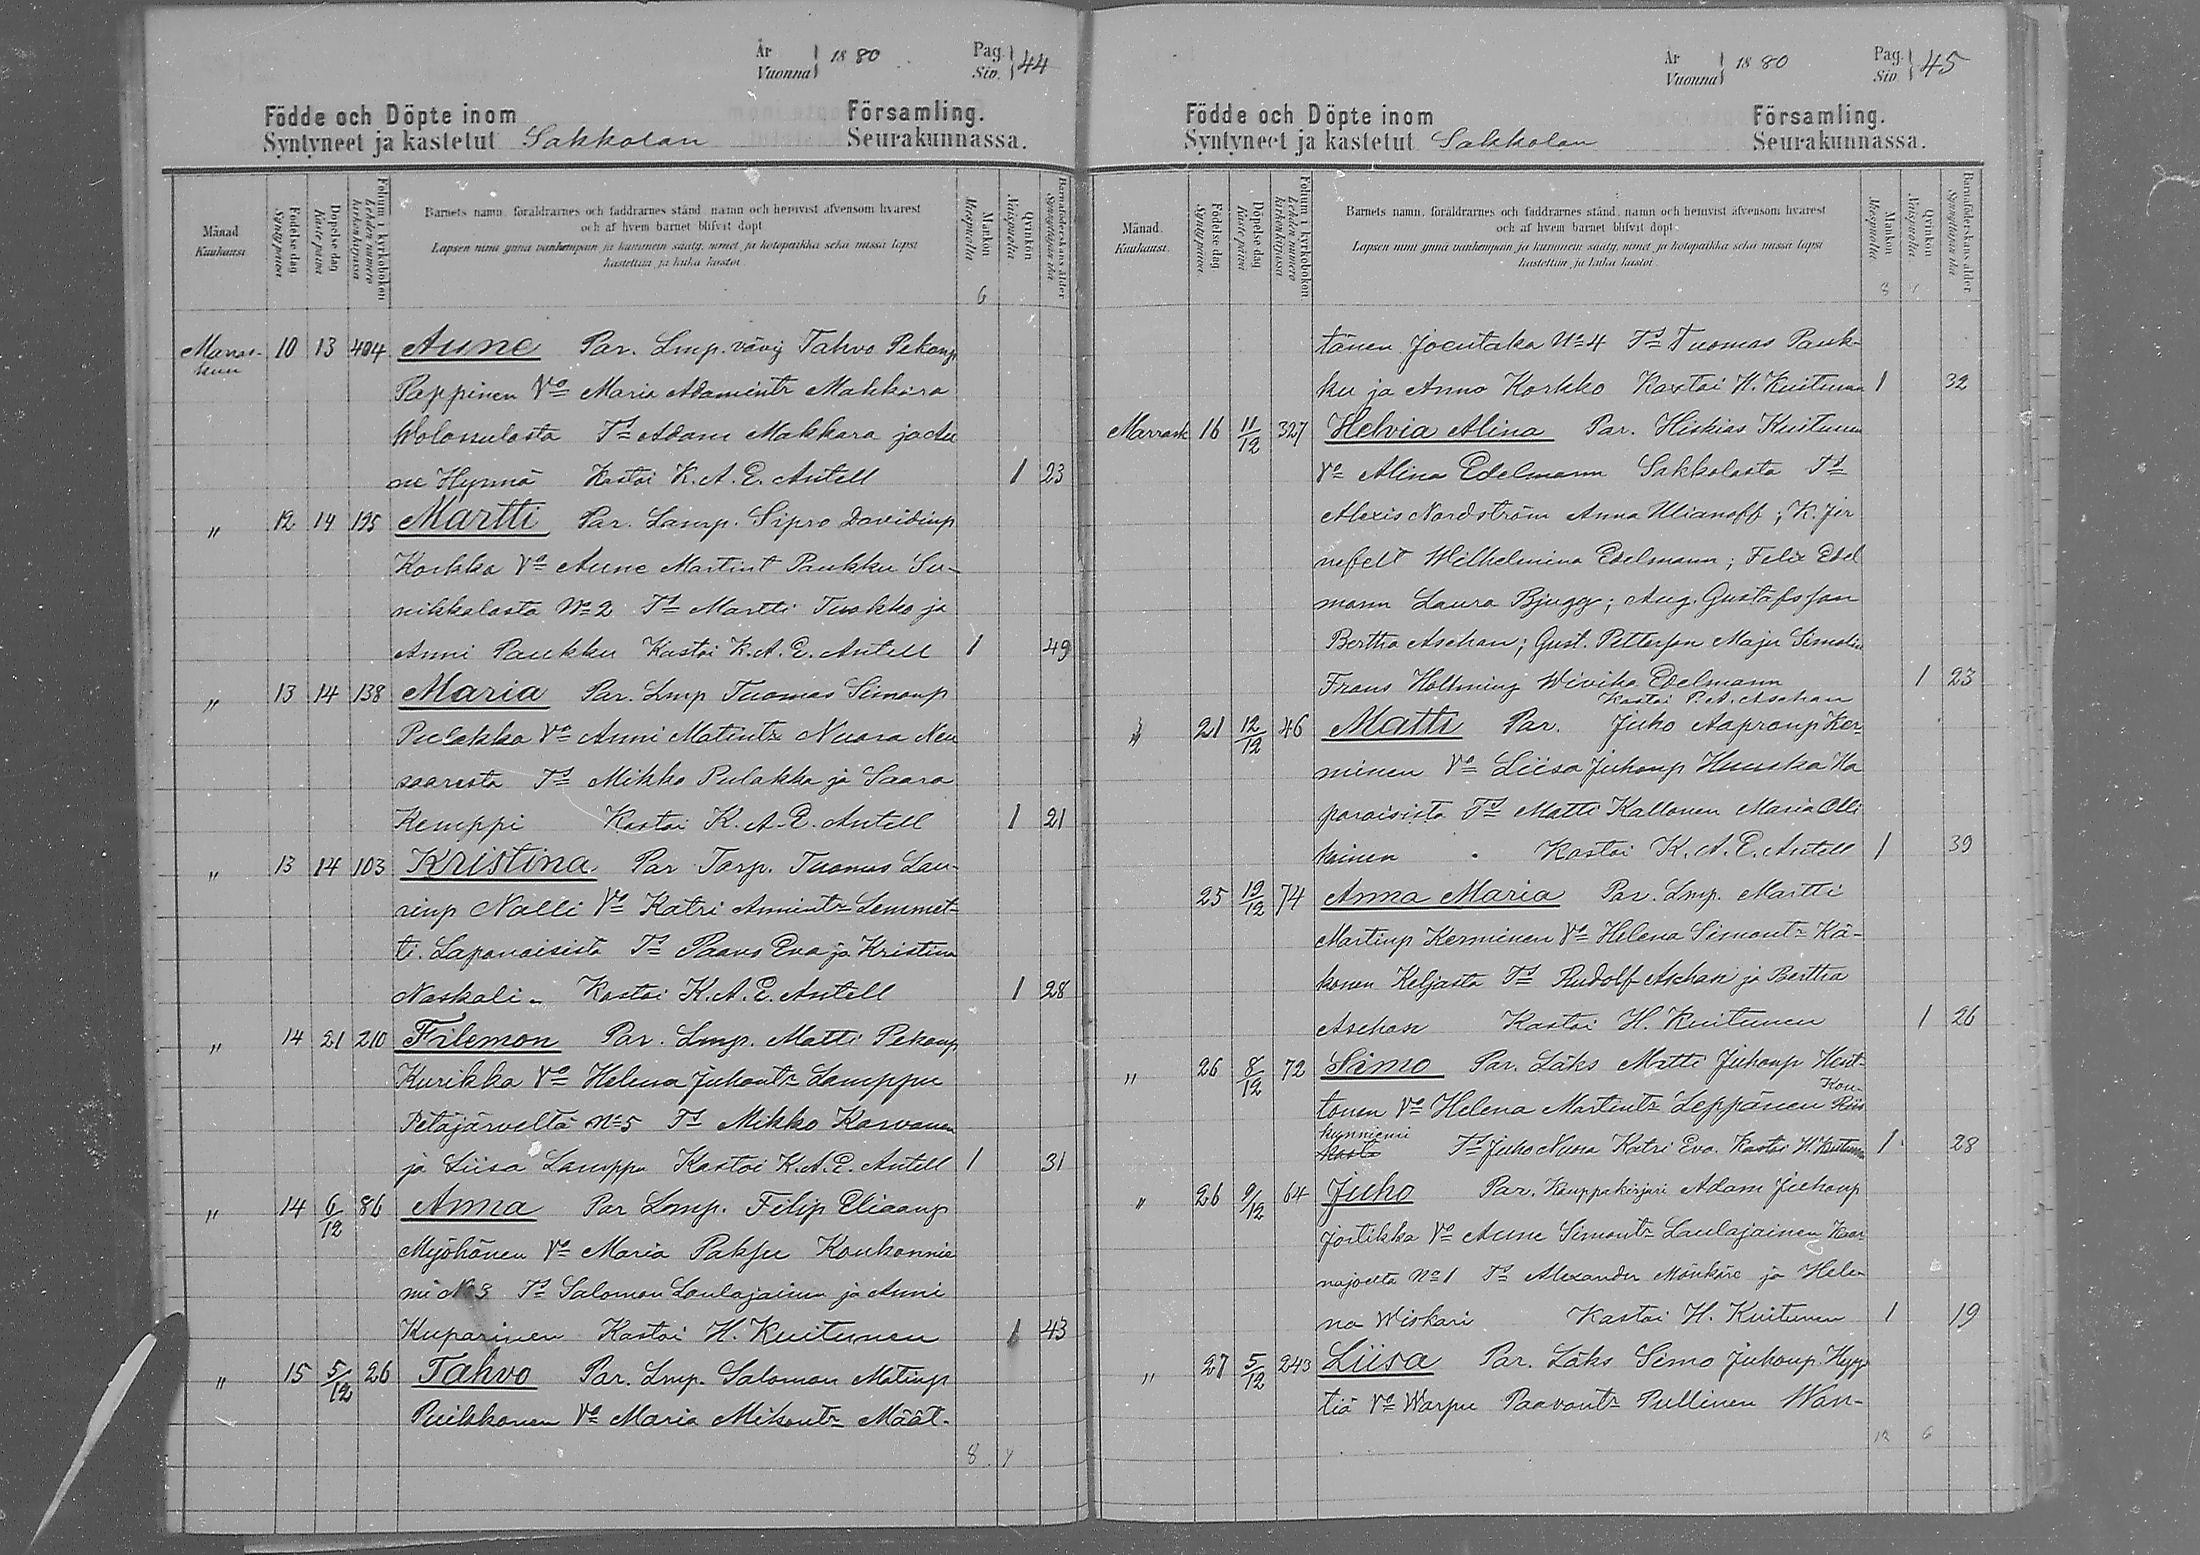 År
Vuonna 1880
Pag.
Siv. 44
Födde och Döpte inom Församling.
Syntyneet ja kastetut Sakkolan Seurakunnassa.
Månad
Kuukausi
Födelsedag
Syntypäivä
Döpelsedag
Kastepäivä
Folium i kyrkoboken
Lehden numero kirkonkirjassa
Barnets namn, föräldrarnes och faddrarnes stånd, namn och hemvist äfvensom hvarest
och af hvem barnet blifvit döpt
Lapsen nimi ynnä vanhempain ja kummein sääty, nimet ja kotopaikka sekä missä lapsi
kastettiin ja kuka kastoi.
Mankön
Miespuolia
Qvinkön
Naispuolia
Barnaföderskans ålder
Synnyttäjän ikä
6
Marras- 10 13 404 Aune Par. Lmp. vävy Tahvo Pekanp
kuu
Pappinen Vo Maria Adamintr Makkara
Wolossulasta Ts Adam Makkara ja Au
ne Hynnä Kastoi K. A. E. Antell 1 23
" 12 14 195 Martti Par. Lamp. Sipro Davidinp
Korkka Vo Aune Martint Paukku Su-
nikkalasta No 2 Ts Martti Tuokko ja
Anni Paukku Kastoi K. A. E. Antell 1 49
" 13 14 138 Maria Par. Lmp Tuomas Simonp
Pulakka Vo Anni Matintr Nuora Neu
saaresta Ts Mikko Pulakka ja Saara
Kemppi Kastoi K. A. E. Antell 1 21
" 13 14 103 Kristina. Par Torp. Tuomas Lau-
rinp Nalli Vo Katri Annintr Lemmet-
ti. Lapanaisista Ts Paavo Eva ja Kristina
Naskali - Kastoi K. A. E. Antell 1 28
" 14 21 210 Filemon Par. Lmp. Matti Pekanp
Kurikka Vo Helena Juhontr Lamppu
Petäjärveltä No 5 Ts Mikko Karvanen
ja Liisa Lamppu Kastoi K. A. E. Antell 1 31
" 14 6/12 86 Anna Par Lmp. Filip Eliaanp
Myöhänen Vo Maria Paksu Koukunnie
mi No 3 Ts Salomon Laulajainen ja Anni
Kuparinen Kastoi H. Kuitunen 1 43
" 15 5/12 26 Tahvo Par. Lmp. Salomon Matinp
Puikkonen Vo Maria Mikontr Määt-
8 7
År
Vuonna 1880
Pag.
Siv. 45
Födde och Döpte inom Församling.
Syntyneet ja kastetut Sakkolan Seurakunnassa.
Månad.
Kuukausi.
Födelsedag
Syntypäivä
Döpelsedag
Kastepäivä
Folium i kyrkoboken
Lehden numero kirkonkirjassa
Barnets namn, föräldrarnes och faddrarnes stånd, namn och hemvist äfvensom hvarest
och af hvem barnet blifvit döpt
Lapsen nimi ynnä vanhempain ja kummein sääty, nimet ja kotopaikka sekä missä lapsi
kastettiin ja kuka kastoi.
Mankön
Miespuolia
Qvinkön
Naispuolia
Barnaföderskans ålder
Synnyttäjän ikä
8
tänen Joentaka No 4 Ts Tuomas Pauk-
ku ja Anna Korkko Kastoi H. Kuitunen 1 32
Marrask 16 11/12 327 Helvia Alina Par. Hiskias Kuitunen
Vo Alina Edelmann Sakkolasta Ts
Alexis Nordström Anna Ulianoff; K. Jer
nefelt Wilhelmina Edelmann; Felix Edel
mann Laura Bjugg; Aug. Gustafsson
Bertha Aschan; Gust. Petterson Maja Simolin
Frans Hollming Wivika Edelmann 1 23
Kastoi P. A. Aschan
" 21 12/12 46 Matti Par. Juho Aapronp Ker-
minen Vo Liisa Juhonp Huuska Ha
paraisista Ts Matti Kallonen Maria Olli
kainen Kastoi K. A. E. Antell 1 39
25 19/12 74 Anna Maria Par. Lmp. Martti
Martinp Kerminen Vo Helena Simontr Kä-
könen Keljasta Ts Rudolf Aschan ja Bertha
Aschan Kastoi H. Kuitunen 1 26
" 26 8/12 72 Simo Par. Läks Matti Juhonp Hent-
Kou-
tonen Vo Helena Martintr Leppänen Riis
kunniemi
Ts Juho Nuora Katri Eva. Kastoi H. Kuitunen 1 28
" 26 9/12 64 Juho Par. Kauppakirjuri Adam Juhonp
Jortikka Vo Aune Simontr Laulajainen Haar
najoelta No 1 Ts Alexander Mönkäre ja Hele
na Wiskari Kastoi H. Kuitunen 1 19
" 27 5/12 243 Liisa Par. Läks Simo Juhonp Hyy
tiä Vo Warpu Paavontr Pullinen Wan-
12 6